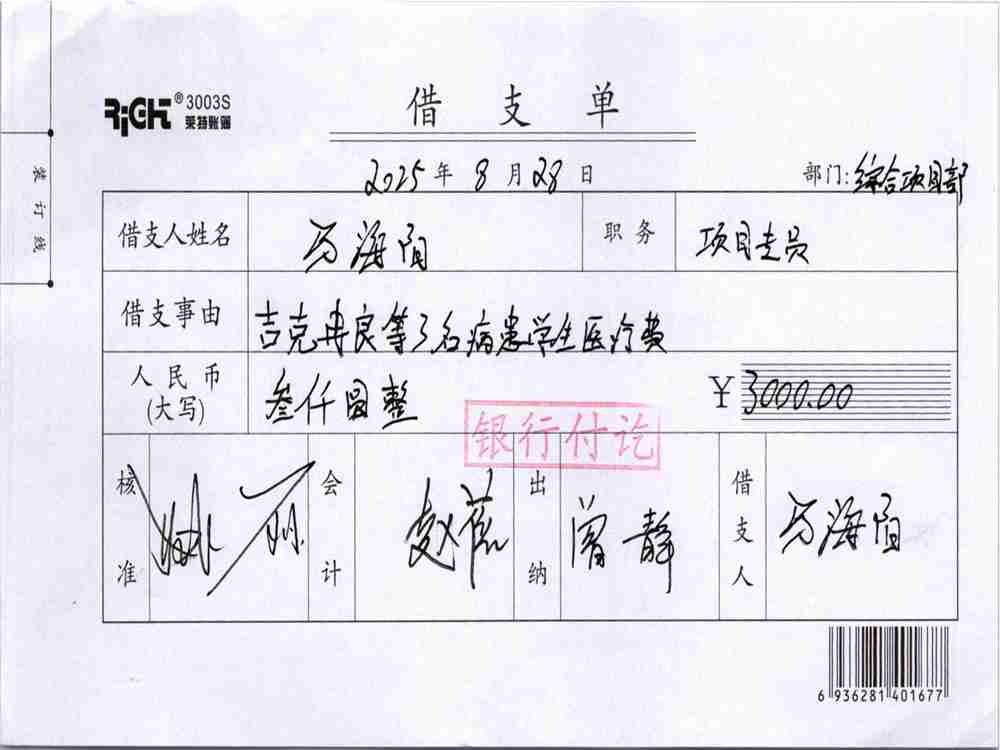 RiGHt ® 3003S
莱特账簿
借支单
2025年8月28日
部门:综合项目部
装订线
借支人姓名 万海阳 职务 项目专员
借支事由 吉克冉良等3名病患学生医疗费
人民币(大写) 叁仟圆整 ¥3000.00
银行付讫
核准 会计 出纳 曾静 借支人 万海阳
6 936281 401677